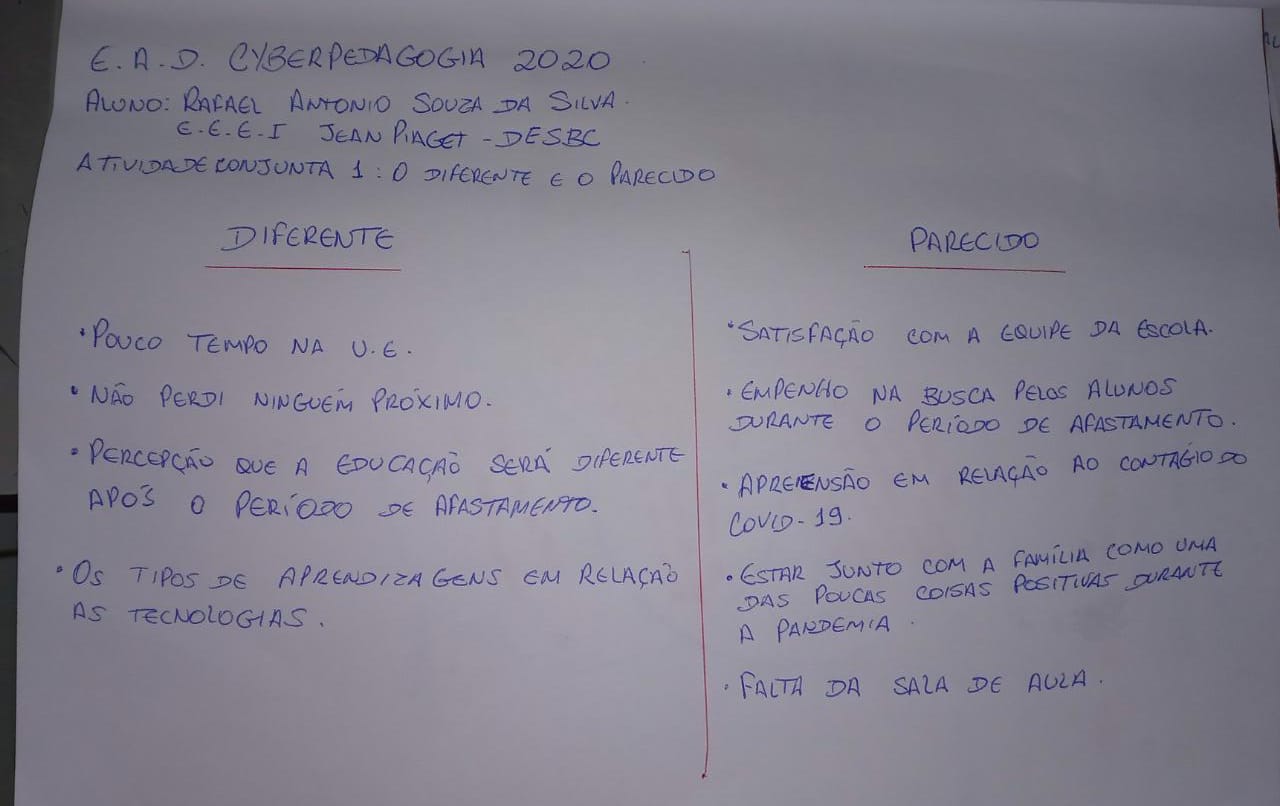 E.A.D. CYBERPEDAGOGIA 2020
ALUNO: RAFAEL ANTONIO SOUZA DA SILVA.
E.E.E.I JEAN PIAGET - DESBC
ATIVIDADE CONJUNTA 1: O DIFERENTE E O PARECIDO
DIFERENTE
• POUCO TEMPO NA U.E.
• NÃO PERDI NINGUÉM PRÓXIMO.
• PERCEPÇÃO QUE A EDUCAÇÃO SERÁ DIFERENTE
APÓS O PERÍODO DE AFASTAMENTO.
• OS TIPOS DE APRENDIZAGENS EM RELAÇÃO
AS TECNOLOGIAS.
PARECIDO
• SATISFAÇÃO COM A EQUIPE DA ESCOLA.
• EMPENHO NA BUSCA PELOS ALUNOS
DURANTE O PERÍODO DE AFASTAMENTO.
• APREENSÃO EM RELAÇÃO AO CONTÁGIO DO
COVID-19.
• ESTAR JUNTO COM A FAMÍLIA COMO UMA
DAS POUCAS COISAS POSITIVAS DURANTE
A PANDEMIA.
• FALTA DA SALA DE AULA.